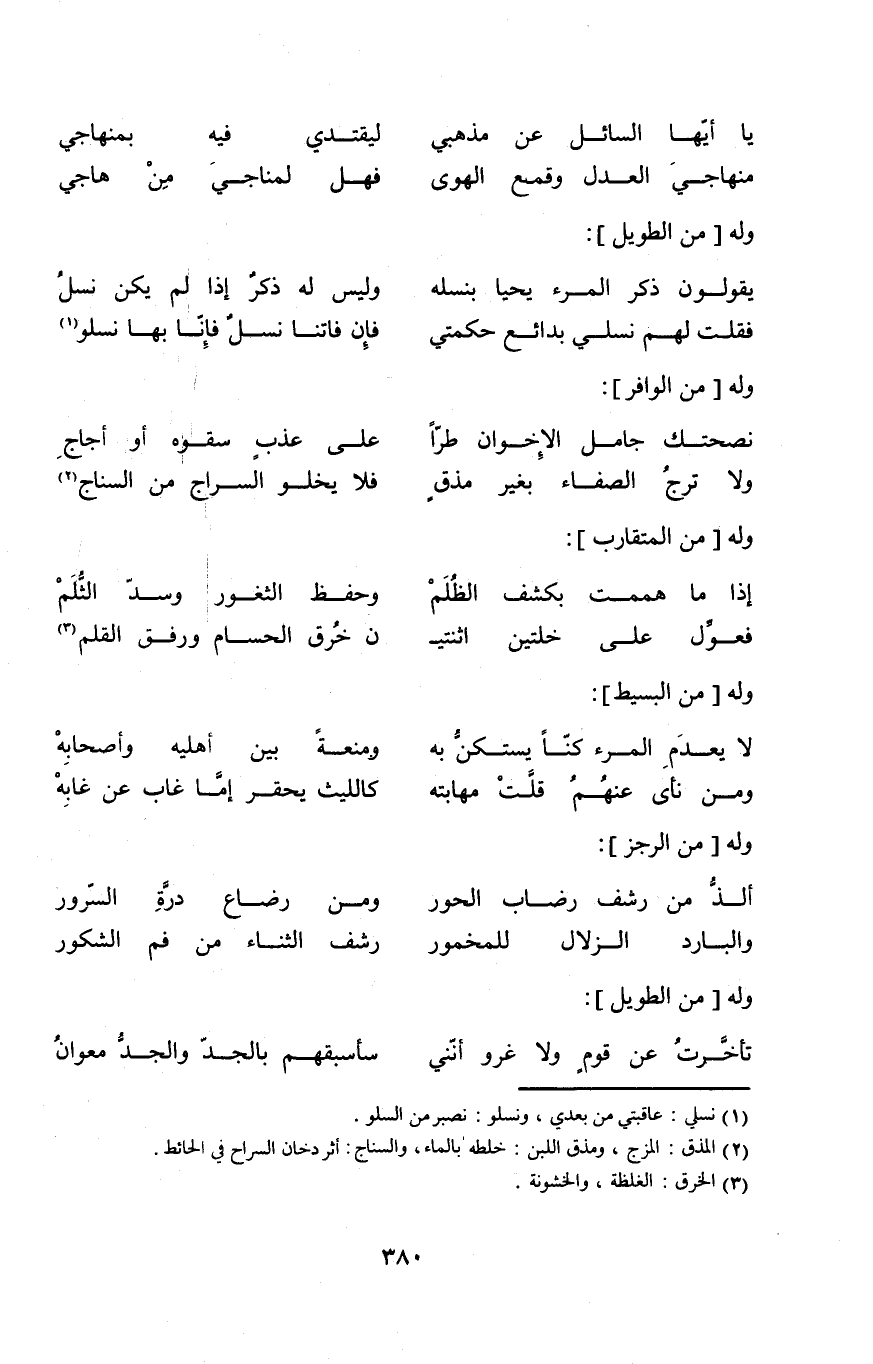 يا أيّها السائل عن مذهبي ليقتدي فيه بمنهاجي
منهاجيَ العدل وقمع الهوى فهل لمناجيَ مِنْ هاجي
وله [ من الطويل ]:
يقولون ذكر المرء يحيا بنسله وليس له ذكرٌ إذا لم يكن نسلُ
فقلت لهم نسلي بدائع حكمتي فإن فاتنا نسلٌ فإنّا بها نسلو(١)
وله [ من الوافر ]:
نصحتك جامل الإخوان طرّاً على عذبٍ سقوه أو أجاجِ
ولا ترجُ الصفاء بغير مذقٍ فلا يخلو السراج من السناج(٢)
وله [ من المتقارب ]:
إذا ما هممت بكشف الظُلَمْ وحفظ الثغور وسدّ الثُّلَمْ
فعوِّل على خلتين اثنتيـ ن خُرق الحسام ورفق القلم(٣)
وله [ من البسيط]:
لا يعدَمِ المرء كنّاً يستكنُّ به ومنعةً بين أهليه وأصحابِهْ
ومن نأى عنهُمُ قلَّتْ مهابته كالليث يحقر إمَّا غاب عن غابِهْ
وله [ من الرجز ]:
ألذُّ من رشف رضاب الحور ومن رضاع درَّةِ السّرور
والبارد الزلال للمخمور رشف الثناء من فم الشكور
وله [ من الطويل ]:
تأخَّرتُ عن قومٍ ولا غرو أنّني سأسبقهم بالجدّ والجدُّ معوانُ
(١) نسلي : عاقبتي من بعدي ، ونسلو : نصبر من السلو .
(٢) المذق : المزج ، ومذق اللبن : خلطه بالماء ، والسناج : أثر دخان السراح في الحائط .
(٣) الخرق : الغلظة ، والخشونة .
٣٨٠